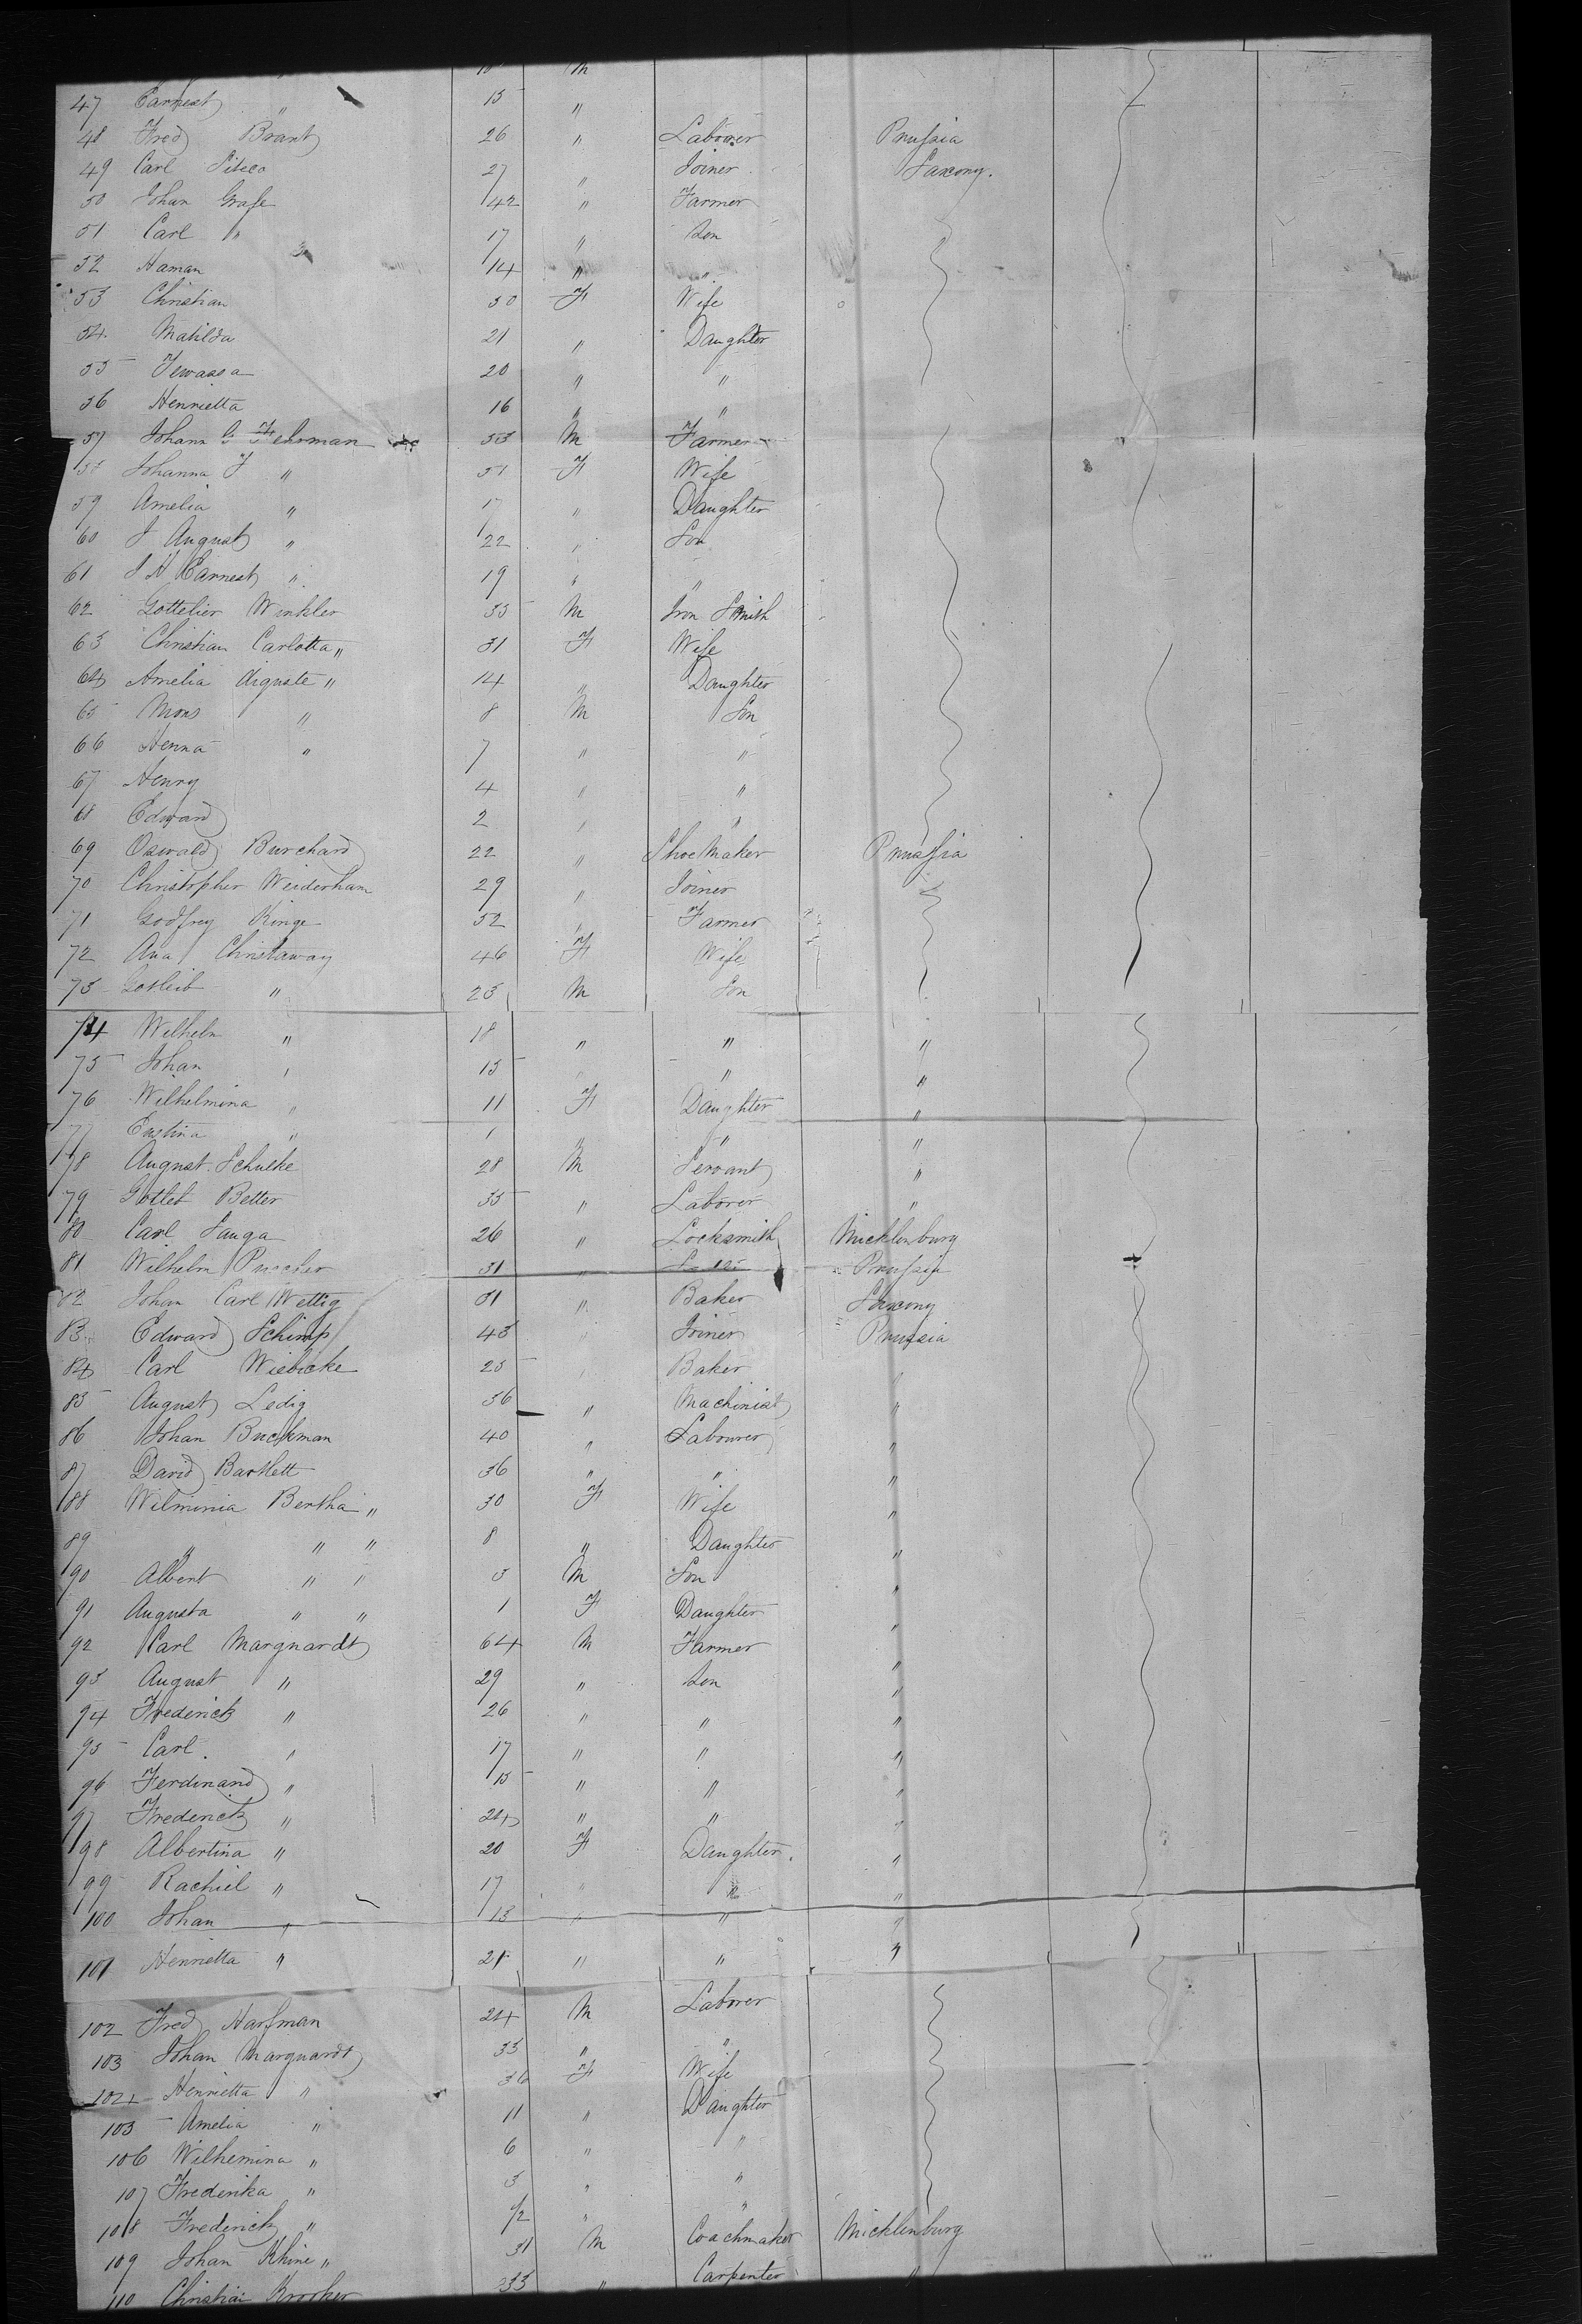 M
47 Earnest " 15 "
48 Fred Brant 26 " Laborer Prussia
49 Carl Siteco 27 " Joiner Saxony.
50 Johan Grafe 42 " Farmer
51 Carl " 17 " Son
52 Haman 14 " "
53 Christian 50 F Wife
54 Matilda 21 " Daughter
55 Tewassa 20 " "
56 Henrietta 16 " "
57 Johann G Fehsman 53 M Farmer
58 Johanna F " 51 F Wife
59 Amelia " 17 " Daughter
60 J August " 22 " Son
61 J H Earnest " 19 " "
62 Gottelier Winkler 35 M Iron Smith
63 Christian Carlotta " 31 F Wife
64 Amelia Auguste " 14 " Daughter
65 Mons " 8 M Son
66 Henna " 7 " "
67 Henry 4 " "
68 Edward 2 " "
69 Oswald Burchard 22 " Shoe Maker Prussia
70 Christopher Weiderham 29 " Joiner
71 Godfrey Kinge 52 " Farmer
72 Ana Christaway 46 F Wife
73 Gotleib " 23 M Son
74 Wilhelm " 18 " " "
75 Johan " 15 " " "
76 Wilhelmina " 11 F Daughter "
77 Eustina " 1 " " "
78 August Schulke 28 M Servant "
79 Gotlet Better 35 " Laborer "
80 Carl Sauga 26 " Locksmith Micklenburg
81 Wilhelm Puscher 31 " Prussia
82 Johan Carl Wettig 31 " Baker Saxony
83 Edward Schimp 43 " Joiner Prussia
84 Carl Wiebicke 25 " Baker
85 August Ledig 36 " Machinist "
86 Johan Buckman 40 " Labourer "
87 David Bartlett 36 " " "
88 Wilminia Bertha " 30 F Wife "
89 " " " 8 " Daughter "
90 Albert " " 3 M Son "
91 Augusta " " 1 F Daughter "
92 Carl Marquardt 64 M Farmer "
93 August " 29 " Son "
94 Frederick " 26 " " "
95 Carl " 17 " " "
96 Ferdinand " 15 " " "
97 Frederick " 24 " " "
98 Albertina " 20 F Daughter. "
99 Rachiel " 17 " " "
100 Johan " 13 " " "
101 Henrietta " 21 " " "
102 Fred Harfman 24 M Laborer
103 Johan Marquardt 35 " "
104 Henrietta " 36 F Wife
105 Amelia " 11 " Daughter
106 Wilhemina " 6 " "
107 Frederika " 3 " "
108 Frederick " 1/2 " "
109 Johan Khine " 31 M Coachmaker Micklenburg
110 Christian Krocker 33 " Carpenter "